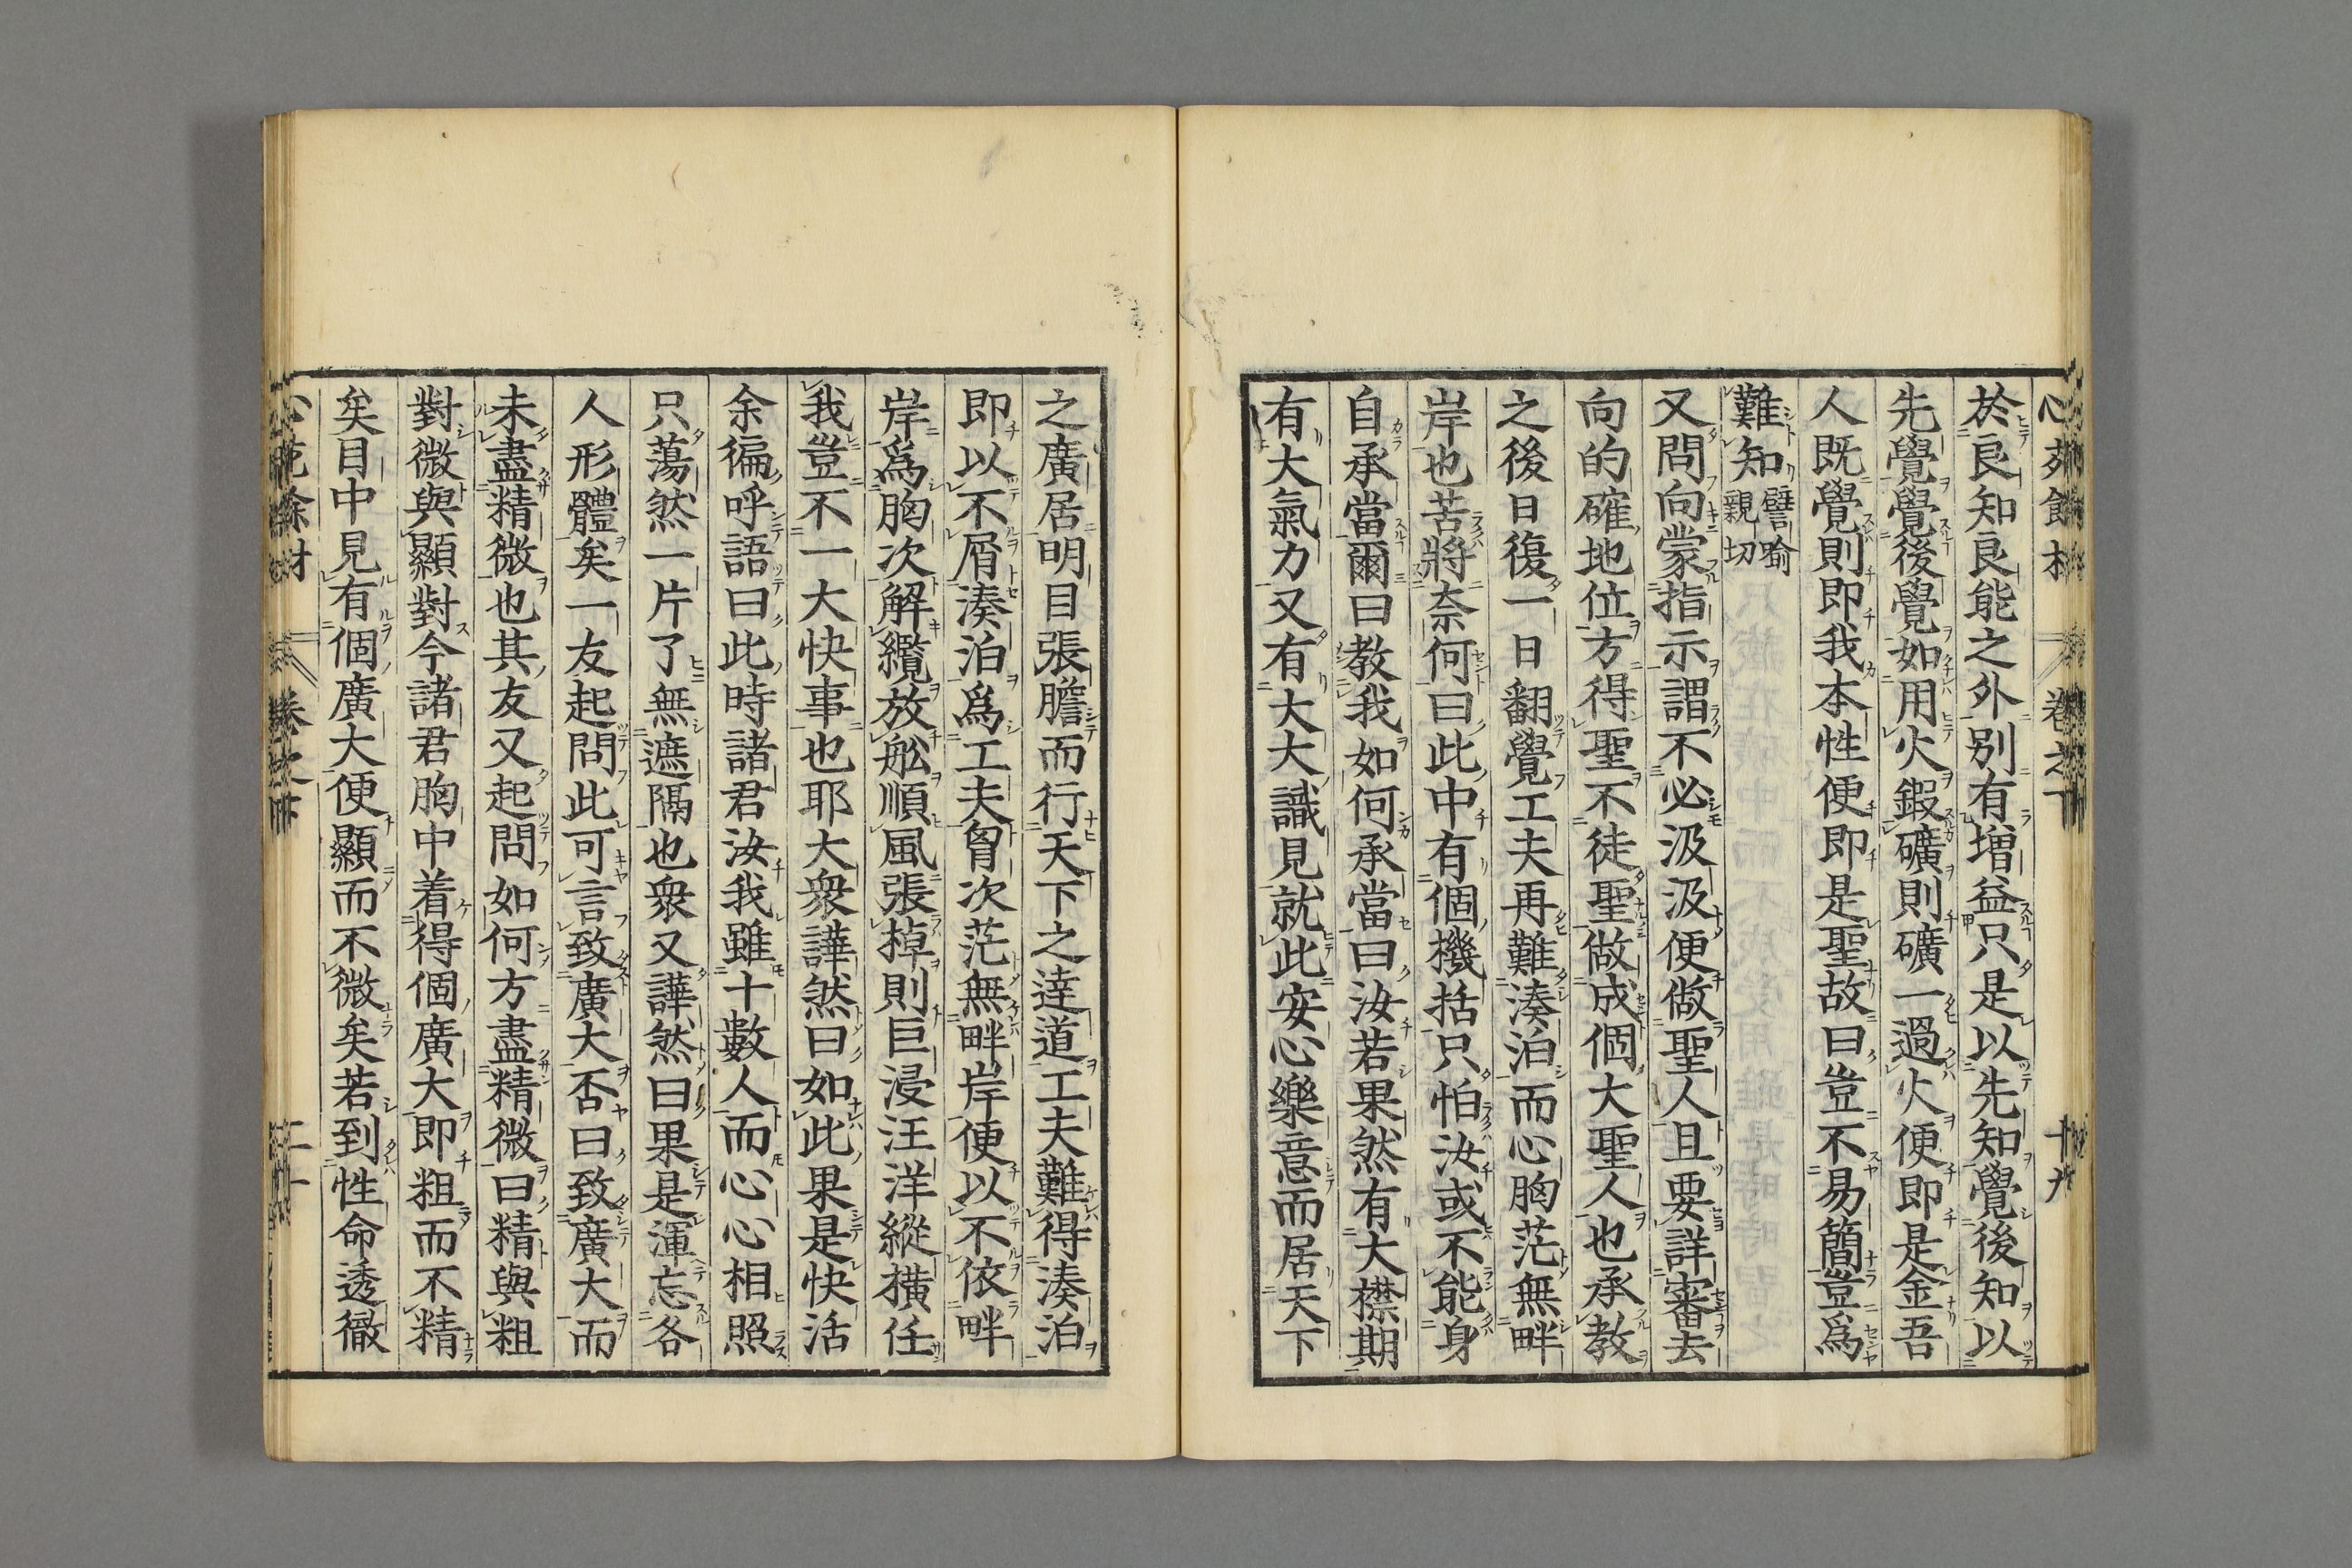 於良知良能之外別有增益只是以先知覺後知以
先覺覺後覺如用火鍜礦則礦一過火便即是金吾
人既覺則即我本性便即是聖故曰豈不易簡豈爲
難知譬喻親切
又問向蒙指示謂不必汲汲便做聖人且要詳審去
向的確地位方得聖不徒聖做成個大聖人也承教
之後日復一日翻覺工夫再難湊泊而心胸茫無畔
岸也苦將奈何曰此中有個機括只怕汝或不能身
自承當爾曰教我如何承當曰汝若果然有大襟期
有大氣力又有大大識見就此安心樂意而居天下
之廣居明目張膽而行天下之達道工夫難得湊泊
即以不屑湊泊爲工夫胷次茫無畔岸便以不依畔
岸爲胸次解纜放舩順風張棹則巨浸汪洋縱橫任
我豈不一大快事也耶大衆譁然曰如此果是快活
余徧呼語曰此時諸君汝我雖十數人而心心相照
只蕩然一片了無遮隔也衆又譁然曰果是渾忘各
人形體矣一友起問此可言致廣大否曰致廣大而
未盡精微也其友又起問如何方盡精微曰精與粗
對微與顯對今諸君胸中着得個廣大即粗而不精
矣目中見有個廣大便顯而不微矣若到性命透徹